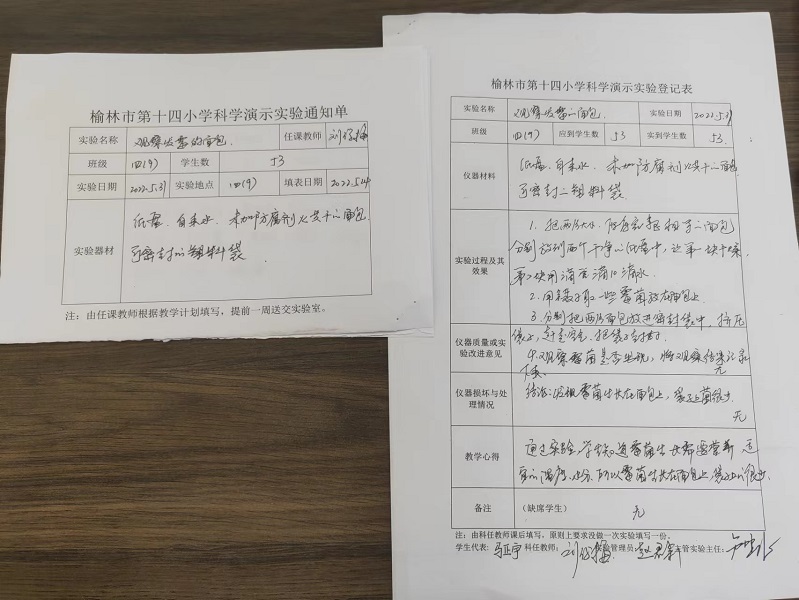 榆林市第十四小学科学演示实验通知单
实验名称 观察发霉的面包 任课教师
班级 四(9) 学生数 53
实验日期 2022.5.31 实验地点 四(9) 填表日期 2022.5.24
实验器材 纸盘、自来水、未加防腐剂及其十二面包
可密封的塑料袋
注：由任课教师根据教学计划填写，提前一周送交实验室。
榆林市第十四小学科学演示实验登记表
实验名称 观察发霉的面包 实验日期 2022.5.31
班级 四(9) 应到学生数 53 实到学生数 53
仪器材料 纸盘、自来水、未加防腐剂
可密封的塑料袋
实验过程及其效果
1. 把两片大小、相等的面包
分别放到两个干净的纸盘中，让第一块干燥
第二块用滴管滴10滴水
2. 用 取一些霉菌放在面包上
3. 分别把两片面包放进密封袋中，挤压
袋子， 把袋子封好
仪器质量或实验改进意见
4. 观察霉菌是否出现，将观察结果记录
下来 无
仪器损坏与处理情况
结论：发现霉菌生长在面包上
无
教学心得
通过实验，学生知道霉菌生长需要营养、适
宜的温度、水分，所以霉菌生长在面包上
备注 (缺席学生) 无
注：由科任教师课后填写，原则上要求没做一次实验填写一份。
学生代表: 科任教师: 实验管理员: 主管实验主任: